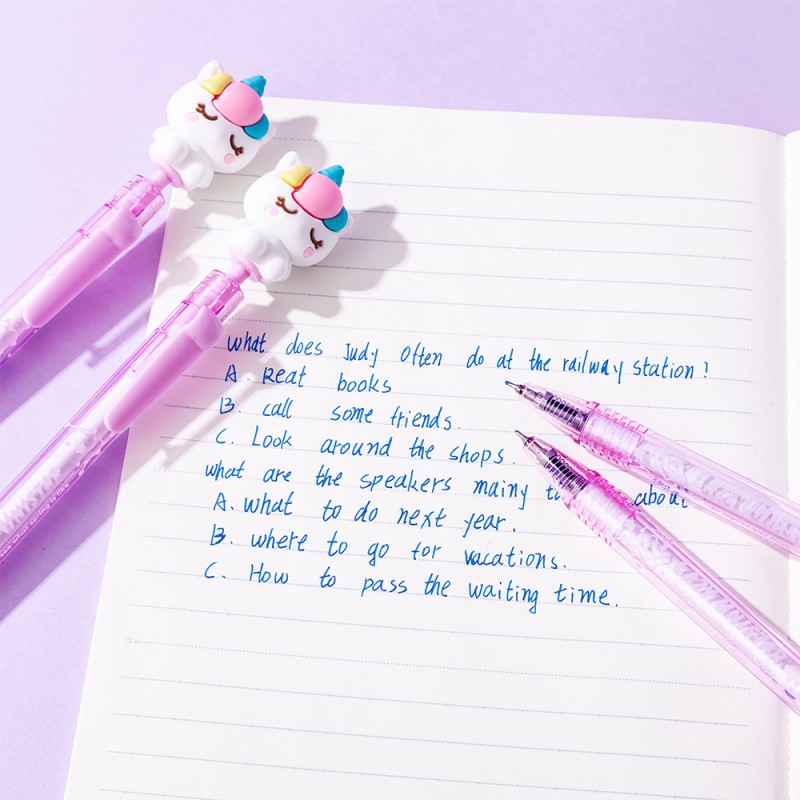 what does Judy Often do at the railway station?
A. Reat books
B. call some friends.
C. Look around the shops.
what are the speakers mainy about
A. what to do next year.
B. where to go for vacations.
C. How to pass the waiting time.